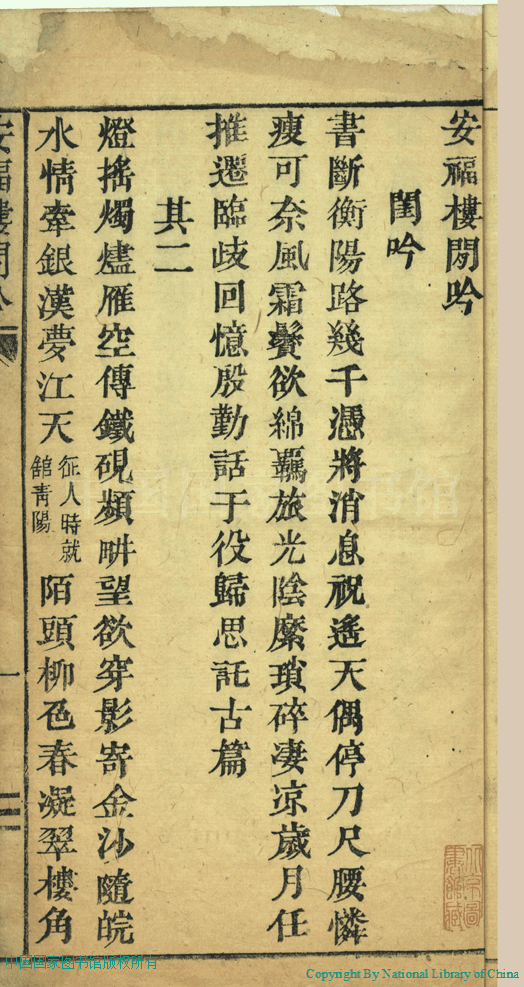 安福樓閒吟
閨吟
書斷衡陽路幾千憑將消息祝遙天偶停刀尺腰憐
瘦可奈風霜鬢欲綿羈旅光陰縻瑣碎凄凉歲月任
推遷臨歧回憶殷勤話于役歸思託古篇
其二
燈搖燭燼雁空傳鐵硯頻畊望欲穿影寄金沙隨皖
水情牽銀漢夢江天征人時就館青陽陌頭柳色春凝翠樓角
安福樓閒吟
一
中国国家图书馆版权所有
Copyright By National Library of China